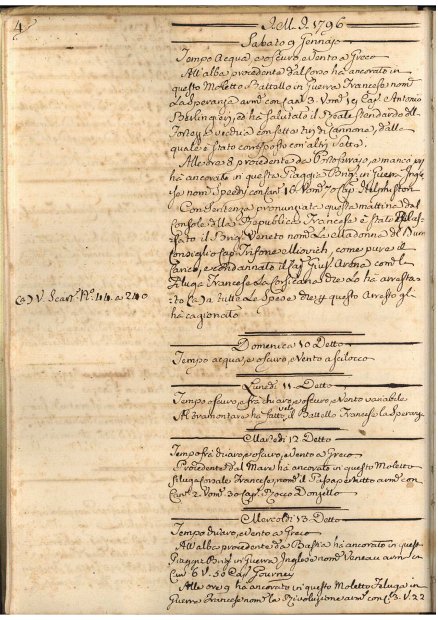 4
A.M.D. 1796
Sabato 9 Gennajo
Tempo Acqua, e oscuro, e vento a Greco
All'alba procedente dal Corso ha ancorato in
questo Moletto Battello in Guerra Francese nom:
La Speranza arm: con Can: 3. Vom: 19 Cap: Antonio
ed ha salutato il Reale Stendardo di
Torre con sette tiri di Cannone, dalle
quale è stato corrisposto con altri
Alle ore 8 procedente da Portoferrajo, e manca
ha ancorato in questa Piaggia Brig: in Guerra Ingle
se nom: Speedy con Can: 16 Vom: 70 Cap:
Con Sentenza pronunziata questa mattina dal
Console della Repubblica Francese è stato Rila=
sciato il Brig: Veneto nom: La Madonna del Buon
Consiglio Cap: Trifone come pure il
Carico, e condannato il Cap: Gius: Arena com:te
Filuga Francese La Corsicana che lo ha arresta=
to (a) in tutte le Spese che questo Arresto gl:
ha cagionato
(a) V. Scart: N.o 44 a 240
Domenica 10 Detto
Tempo acqua, e oscuro, e vento a scilocco
Lunedì 11 Detto
Tempo oscuro, e frà chiaro, e oscuro, e vento variabile
Al tramontare ha fatto vela il Battello Francese la Speranza
Martedì 12 Detto
Tempo frà chiaro, e oscuro, e vento a Greco
Procedente dal Mare ha ancorato in questo Moletto
Filuga Corsale Francese, nom: il arm: con
Can: 2. Vom: 30 Cap: Rocco
Mercoldì 13 Detto
Tempo chiaro, e vento a Greco
All'alba procedente da Bastia ha ancorato in questa
Piaggia Brig: in Guerra Inglese nom: arm: con
Can: 6 V. 50 Cap:
Alle ore 9 ha ancorato in questo Moletto Feluga in
Guerra Francese nom: la Rivoluzione arm: con C: 3. V. 22